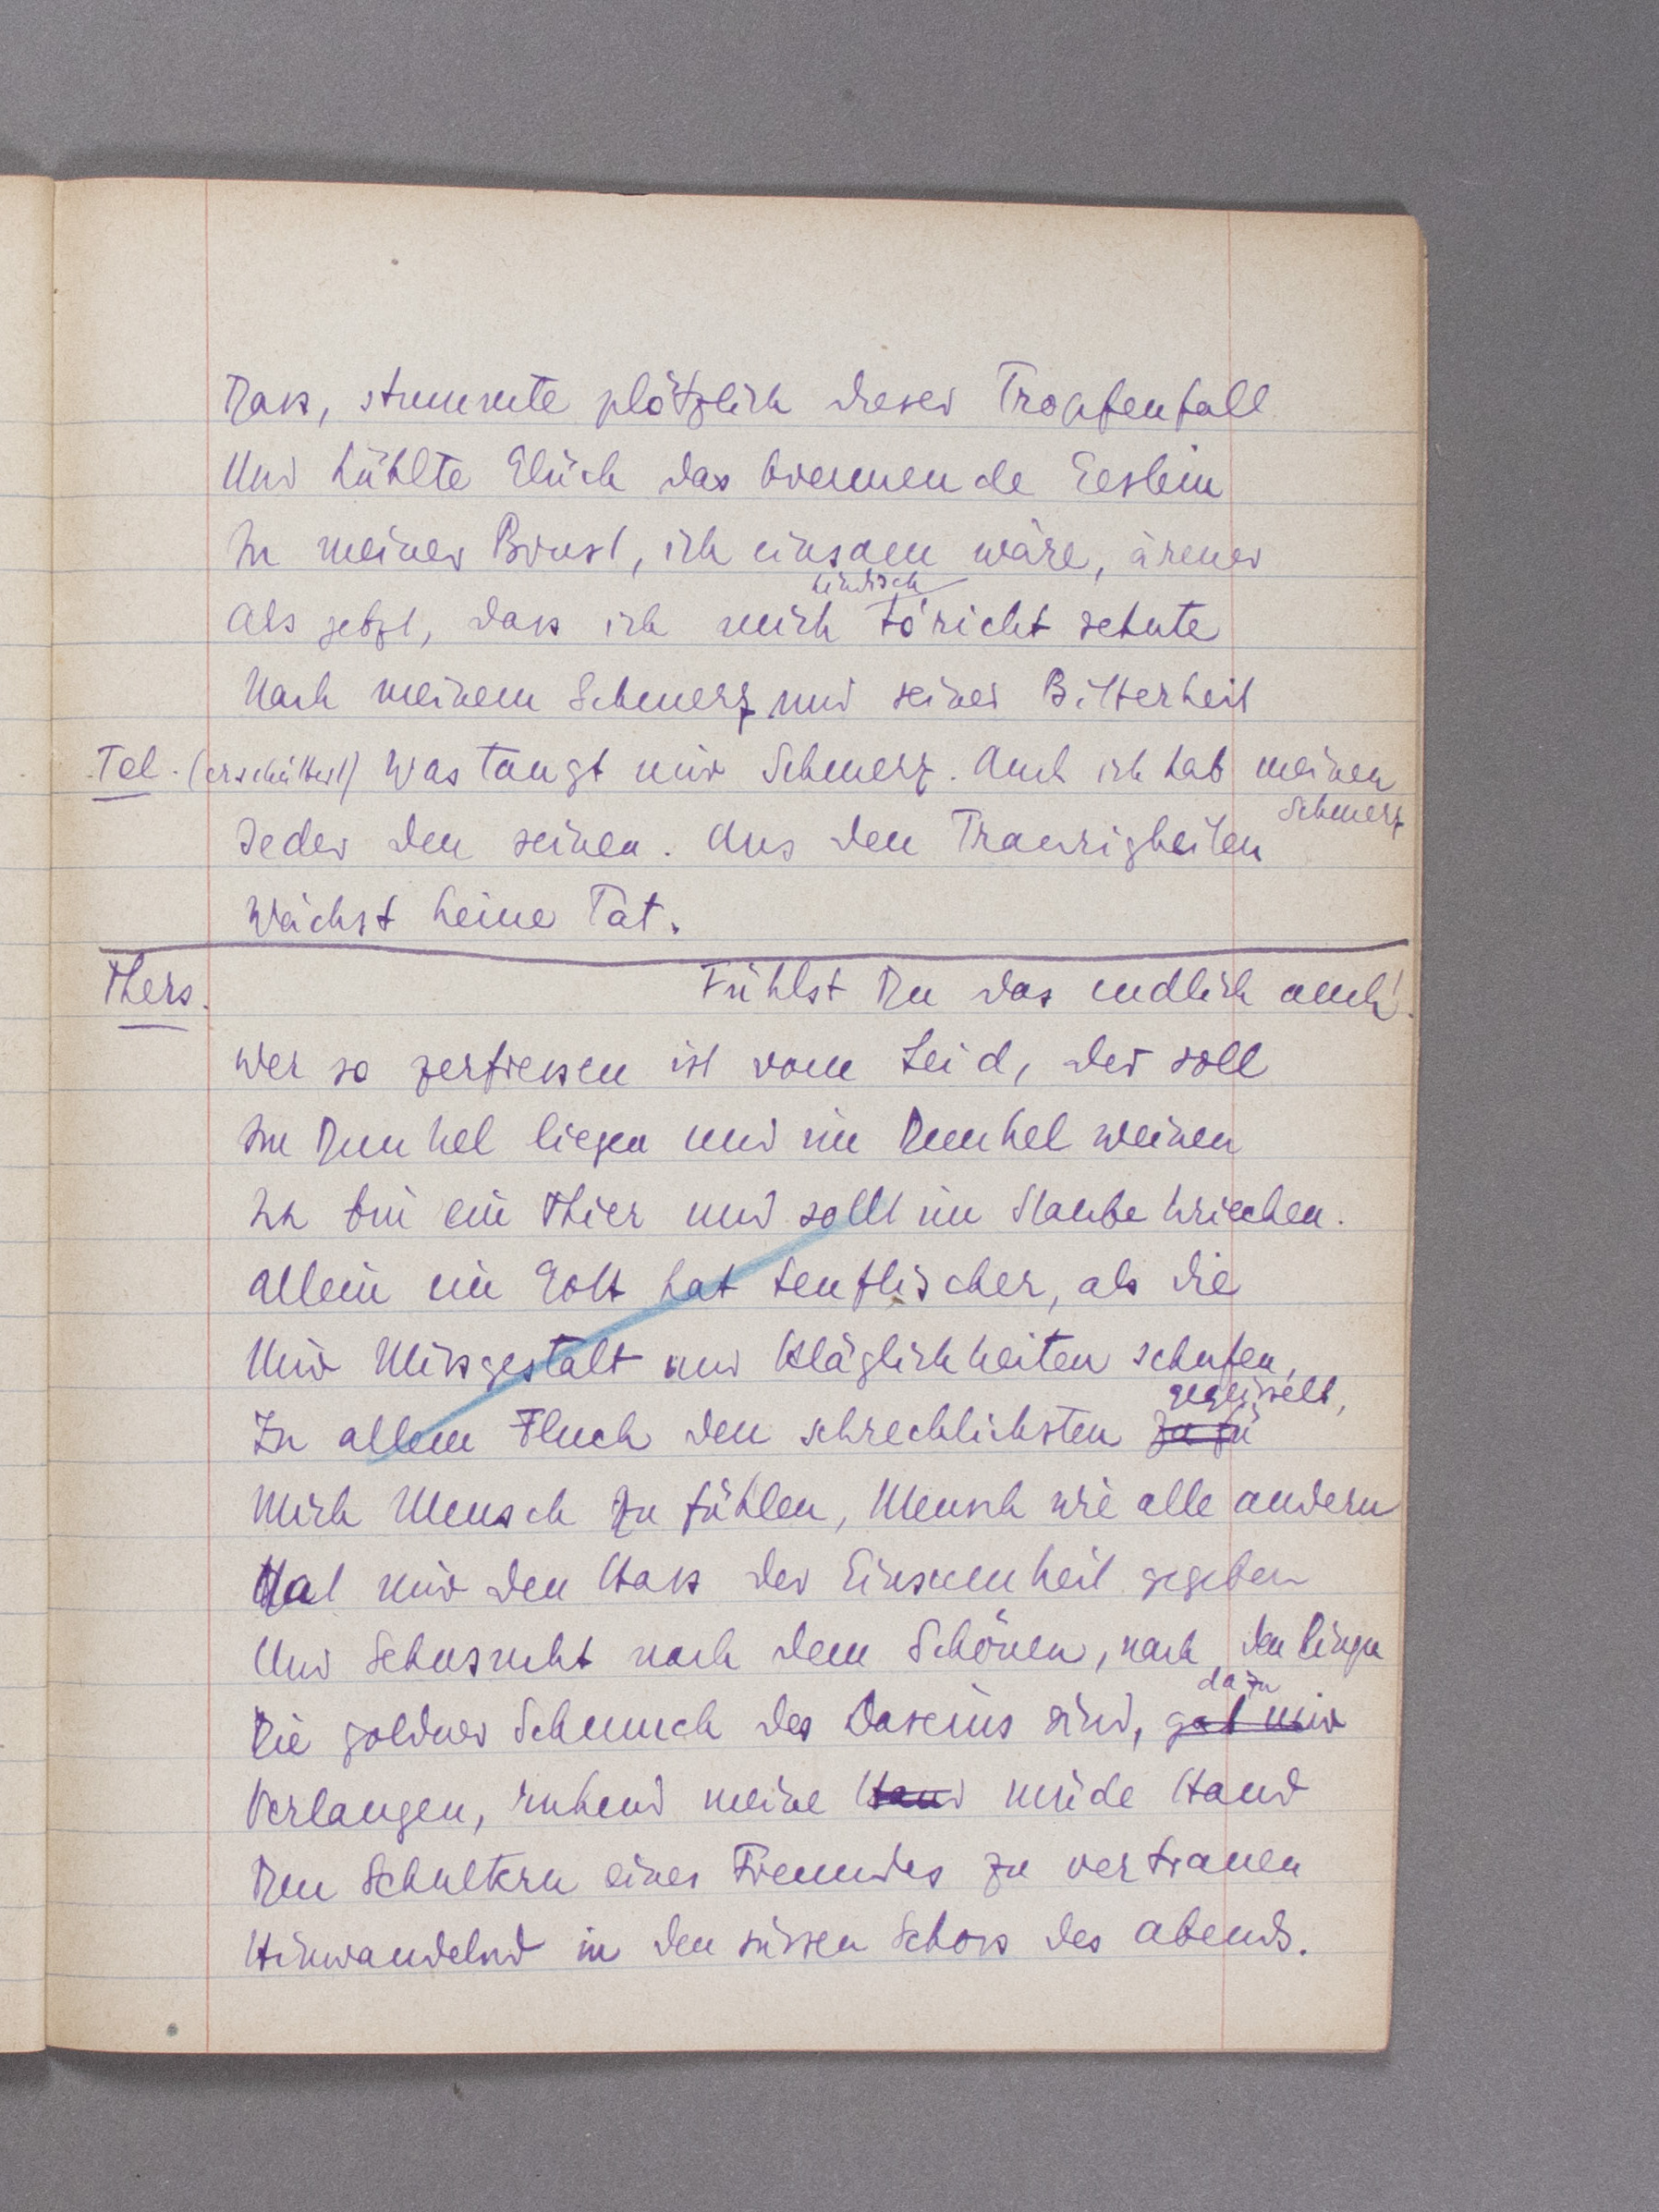 Dass, stummte plötzlich dieser Tropfenfall
Und kühlte Glück das brennende Gestein
In meiner Brust, ich einsam wäre, ärmer
kindisch
Als jetzt, dass ich mich töricht sehnte
Nach meinem Schmerz und seiner Bitterkeit
Tel. (erschüttert) Was taugt mir Schmerz. Auch ich hab meinen
Schmerz
Jeder den seinen. Aus den Traurigkeiten
Wächst keine Tat.
Thers. Fühlst Du das endlich auch!
Wer so zerfressen ist vom Leid, der soll
Im Dunkel liegen und im Dunkel weinen
Ich bin ein Thier und sollt im Staube kriechen.
Allein ein Gott hat teuflischer, als die
Mir Missgestalt und Kläglichkeiten schufen,
gegeisselt,
Zu allem Fluch den schrecklichsten zu fü
Mich Mensch zu fühlen, Mensch wie alle andern
Hat mir den Hass der Einsamkeit gegeben
Und Sehnsucht nach dem Schönen, nach den Dingen
dazu
Die goldner Schmuck des Daseins sind, gab mir
Verlangen, ruhend meine Hand müde Hand
Den Schultern eines Freundes zu vertrauen
Hinwandelnd in den süssen Schoss des Abends.